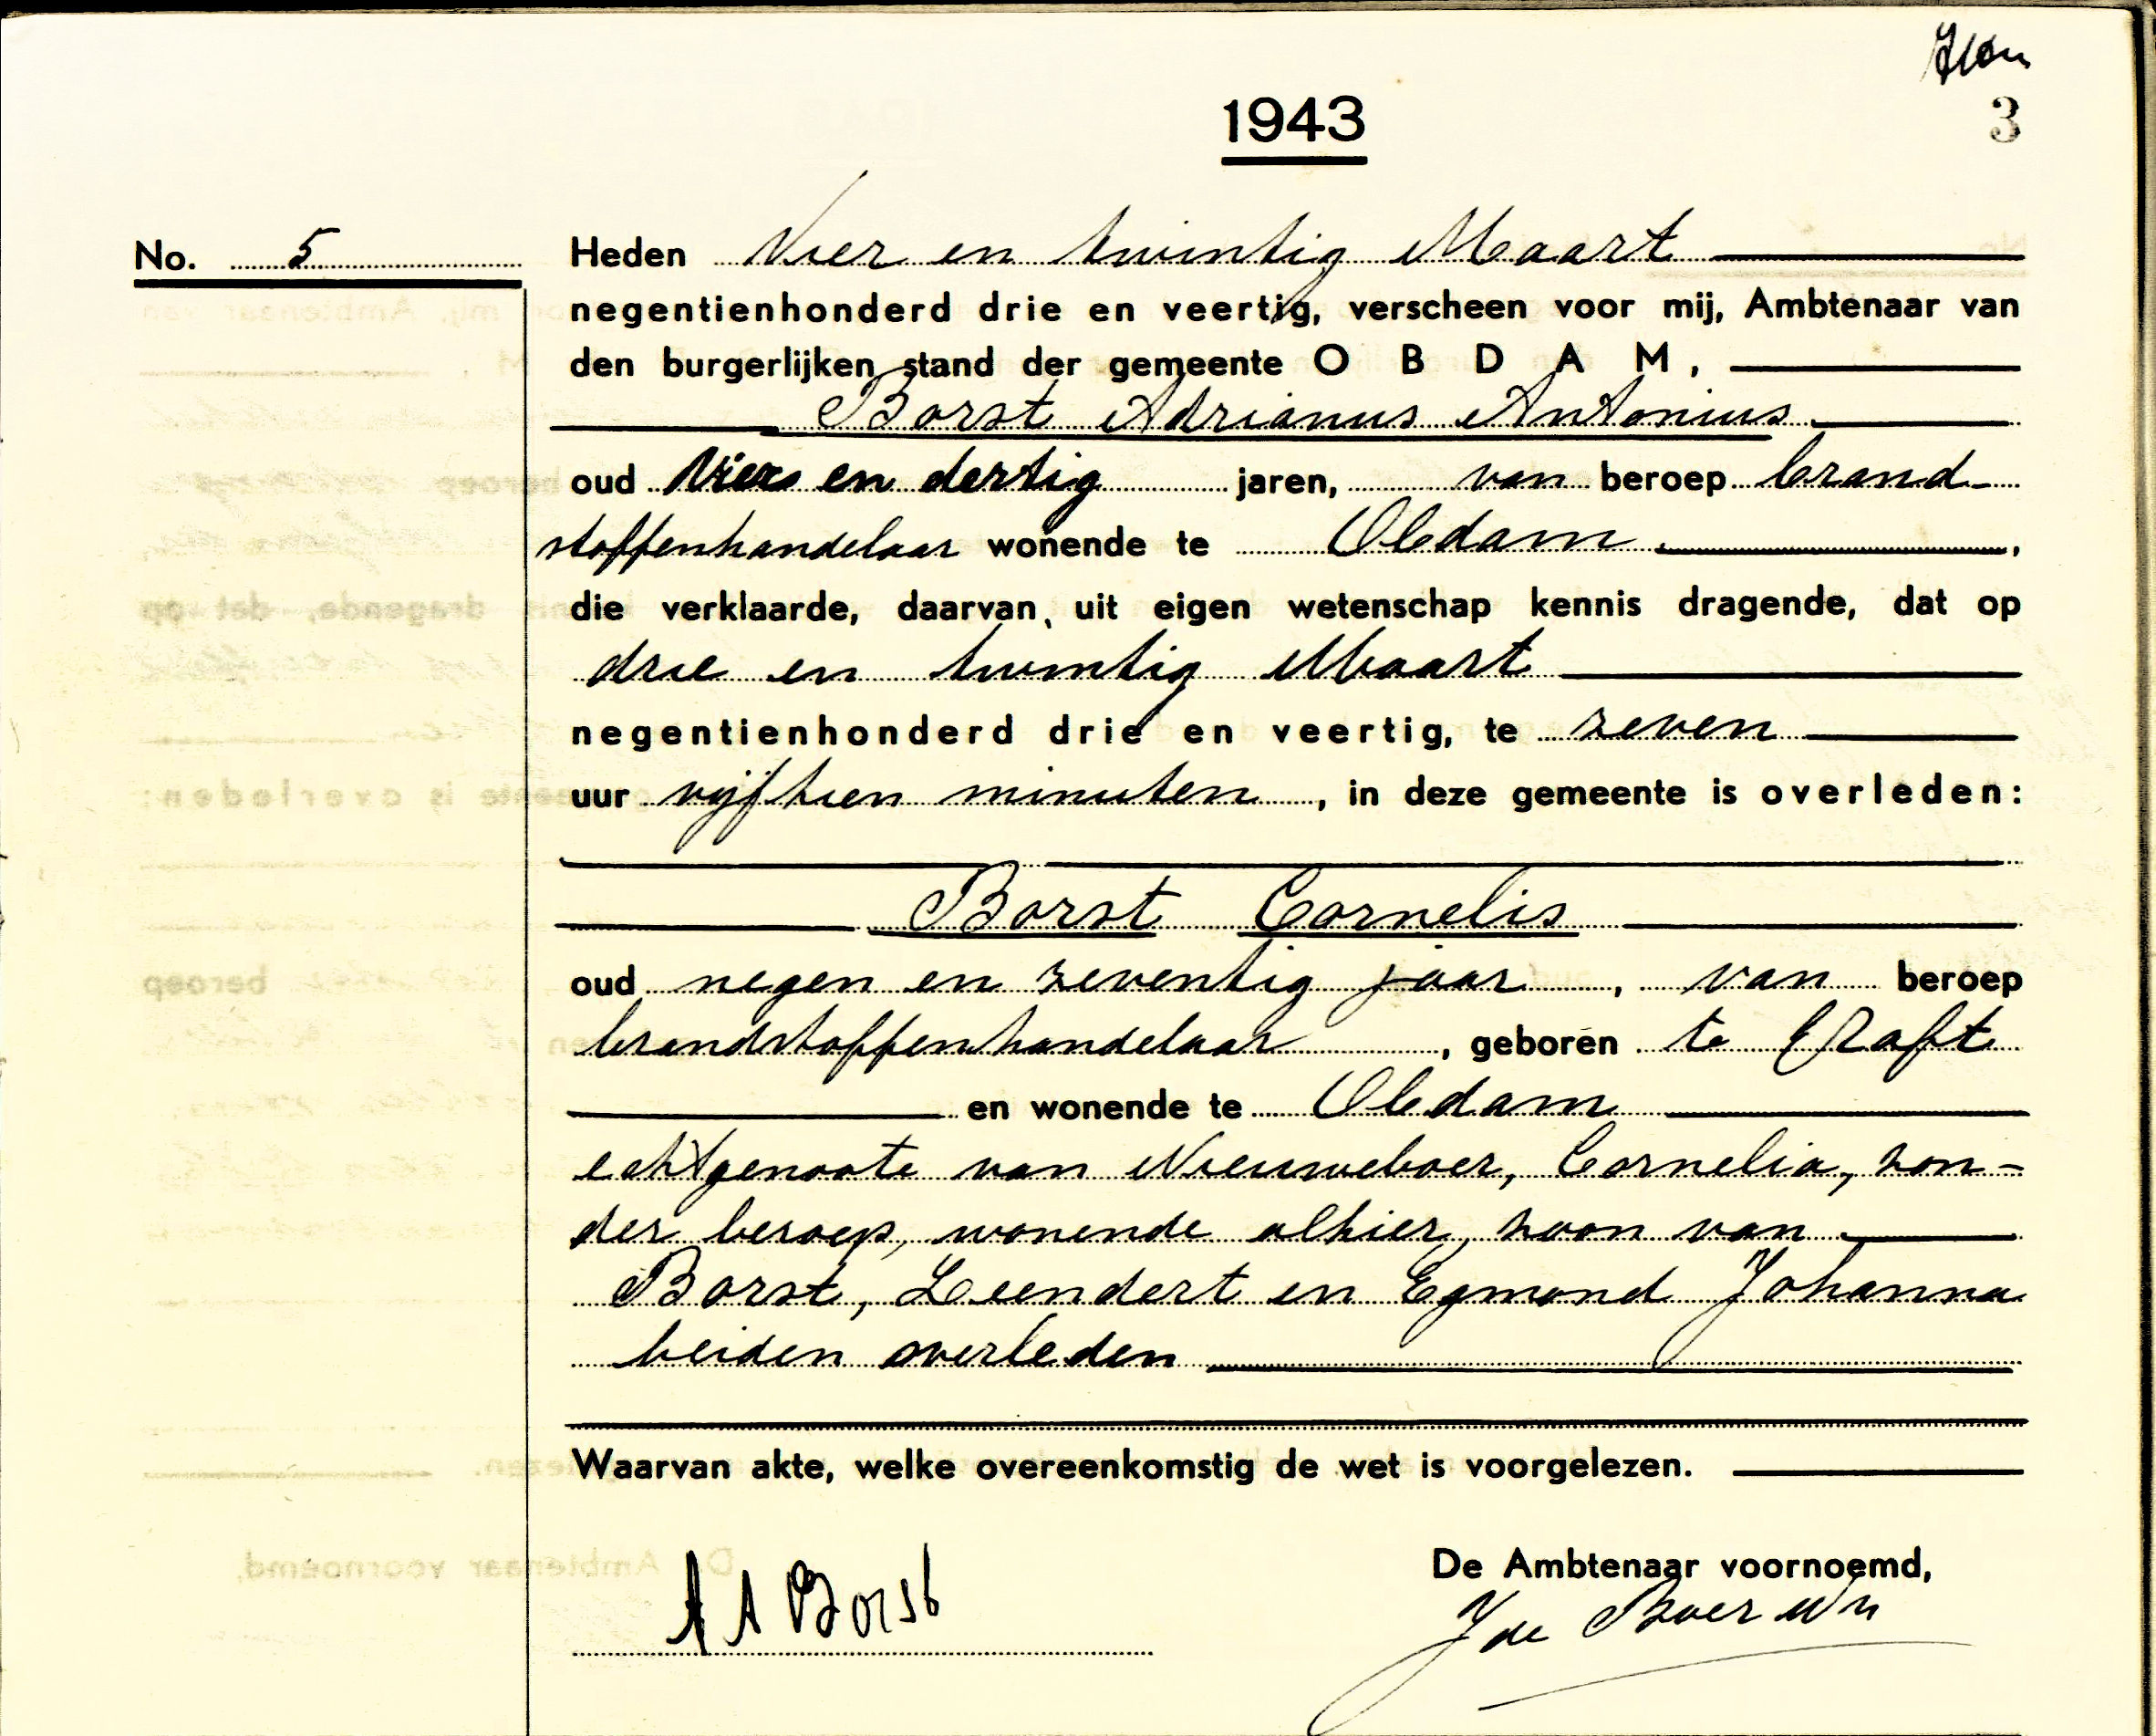 1943
3
No. 5
Heden Vier en twintig Maart
negentienhonderd drie en veertig, verscheen voor mij, Ambtenaar van
den burgerlijken stand der gemeente O B D A M,
Borst Adrianus Antonius
oud Vier en dertig jaren, van beroep brand-
stoffenhandelaar wonende te Obdam,
die verklaarde, daarvan uit eigen wetenschap kennis dragende, dat op
drie en twintig Maart
negentienhonderd drie en veertig, te zeven
uur vijftien minuten, in deze gemeente is overleden:
Borst Cornelis
oud negen en zeventig jaar, van beroep
brandstoffenhandelaar, geboren te Graft
en wonende te Obdam
echtgenoote van Nieuweboer, Cornelia, zon-
der beroep, wonende alhier, zoon van
Borst, Leendert en Egmond Johanna
beiden overleden
Waarvan akte, welke overeenkomstig de wet is voorgelezen.
De Ambtenaar voornoemd,
A A Borst
J de Boer Wn